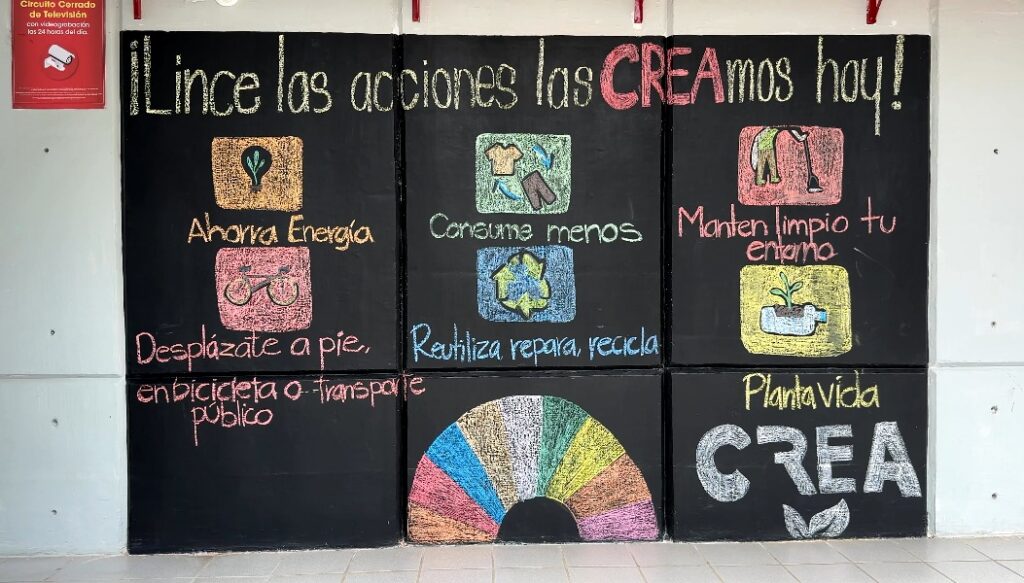 Circuito Cerrado
de Televisión
con videograbación
las 24 horas del día.
¡Lince las acciones las CREAmos hoy!
Ahorra Energía
Consume menos
Manten limpio tu
entorno
Desplázate a pie,
en bicicleta o transporte
público
Reutiliza repara, recicla
Planta vida
CREA